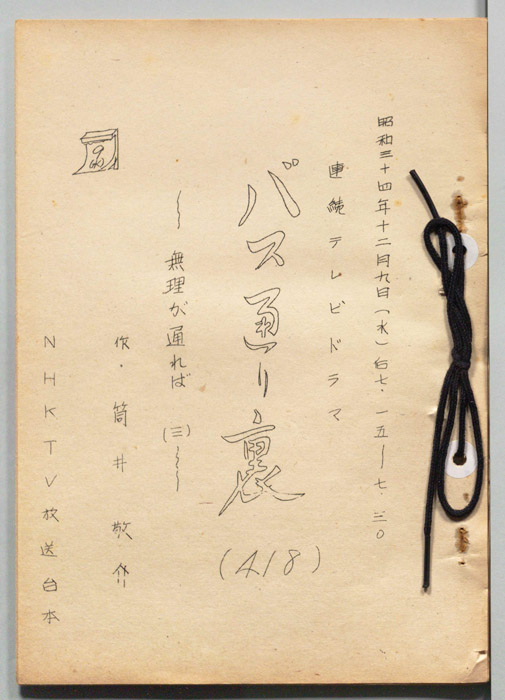 昭和三十四年十二月九日（水）后七・一五ー七三〇
連続テレビドラマ
バス通り裏
(418)
〜無理が通れば（三）〜
作・筒井敬介
NHKTV放送台本